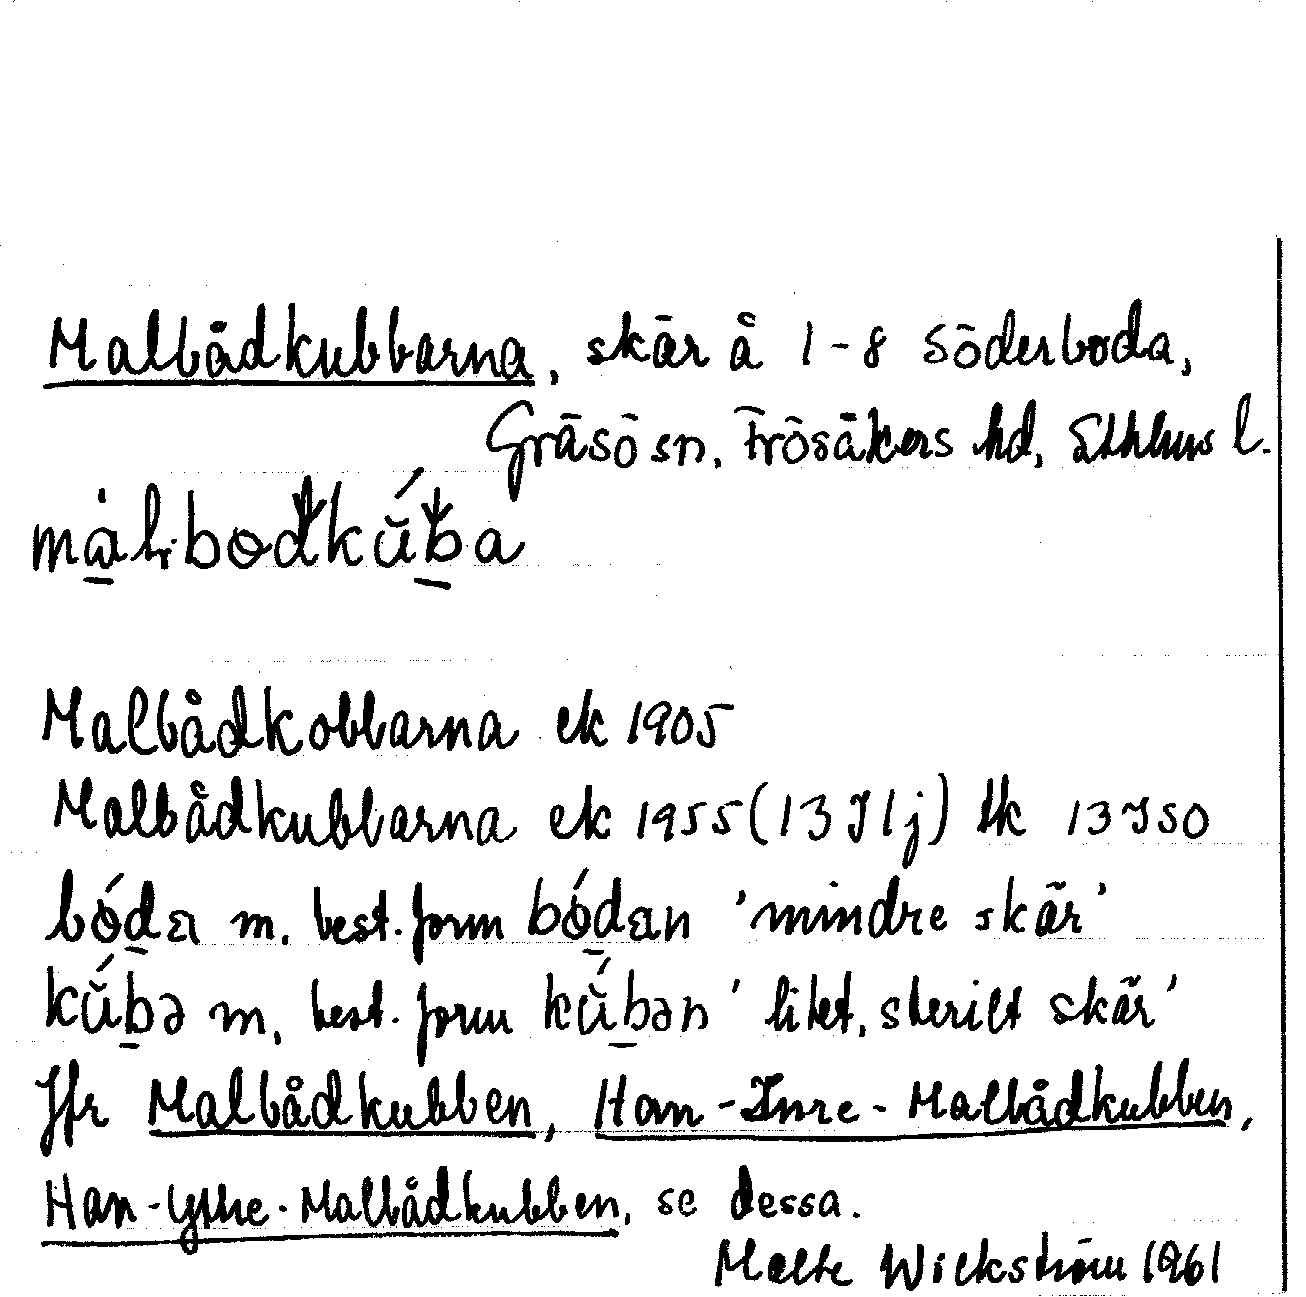 Malbådkubbarna, skär å 1-8 Söderboda,
Gräsö sn, Frösåkers hd, Sthlms l.
Malbådkobbarna ek 1905
Malbådkubbarna ek 1955 (13 I 1 j) tk 13 I SO
m. best. form 'mindre skär'
kúbə m. best. form kúbən 'litet, sterilt skär'
Jfr Malbådkubben, Han-Inre-Malbådkubben,
Han-Yttre-Malbådkubben, se dessa.
Malte Wickström 1961